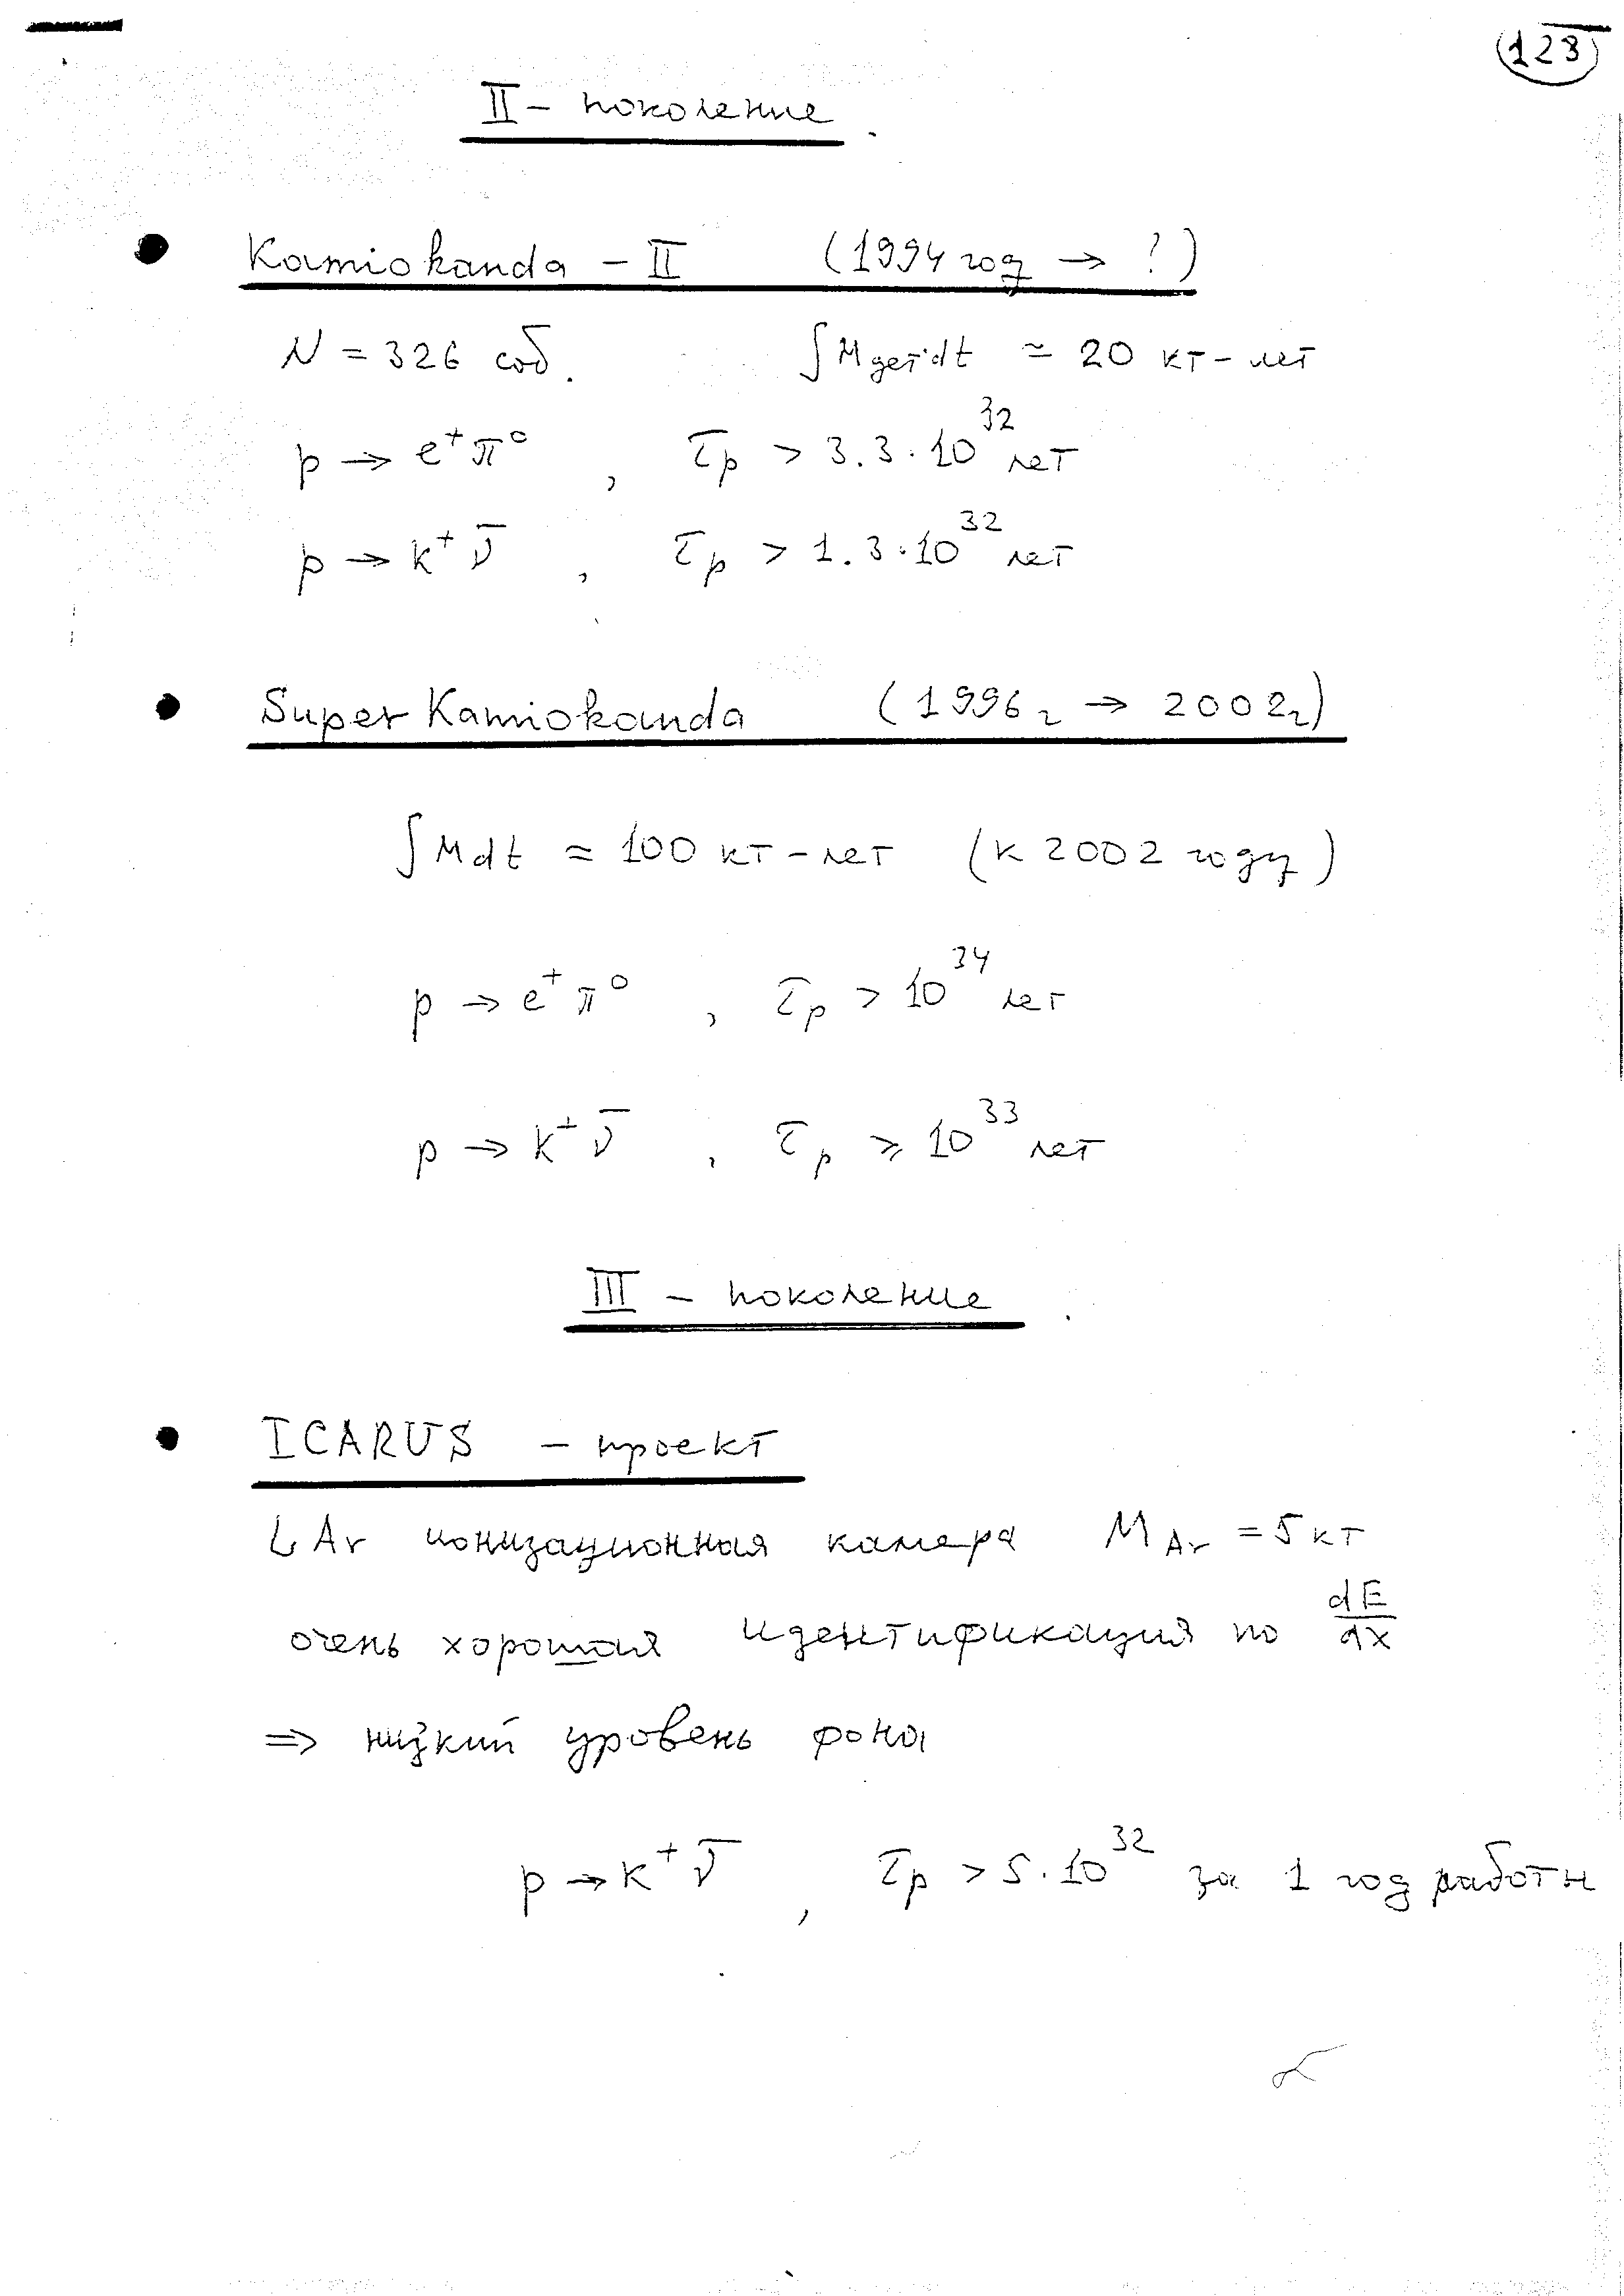 128
II – поколение
• Kamiokanda – II (1994 год → ?)
N = 326 соб. ∫ M дет·dt ≃ 20 кт – лет
p → e⁺π⁰ , τp > 3.3·10³² лет
p → k⁺ ν̄ , τp > 1.3·10³² лет
• Super Kamiokanda (1996г → 2002г)
∫ M dt ≃ 100 кт – лет (к 2002 году)
p → e⁺ π⁰ , τp > 10³⁴ лет
p → k⁺ ν̄ , τp ⩾ 10³³ лет
III – поколение
• ICARUS – проект
LAr ионизационная камера M Ar = 5 кт
очень хорошая идентификация по dE/dx
⇒ низкий уровень фона
p → k⁺ ν̄ , τp > 5·10³² за 1 год работы